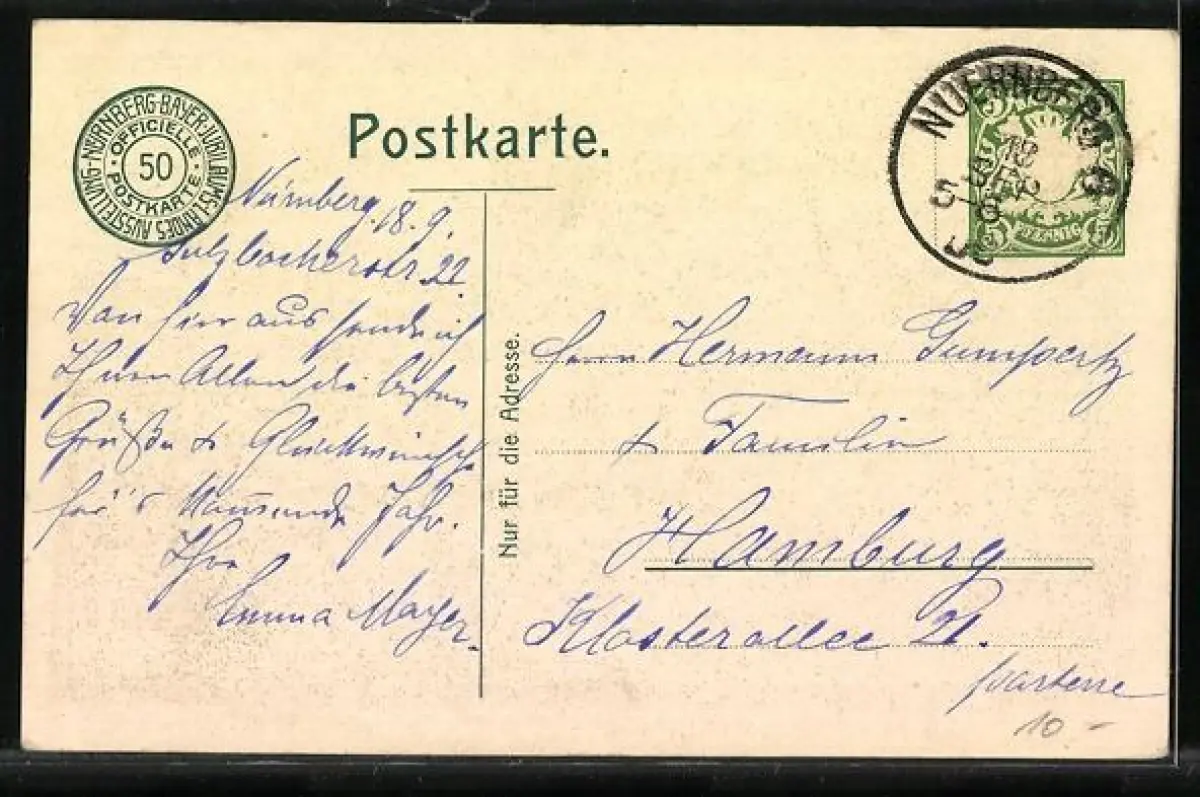 NÜRNBERG·BAYER·JUBILÄUMS LANDES AUSSTELLUNG·
· OFFICIELLE · POSTKARTE ·
50
Postkarte.
NUERNBERG
18 SEP
5
06
5 5
PFENNIG
Nürnberg. 18. 9.
Sulzbacherstr 22.
Von hier aus sende ich
Ihnen Allen die besten
Grüße & Glückwünsche
für's kommende Jahr.
Ihre
Emma Mayer.
Nur für die Adresse.
Herrn Hermann Gumpertz
& Familie
Hamburg
Klosterallee 21.
parterre
10 –